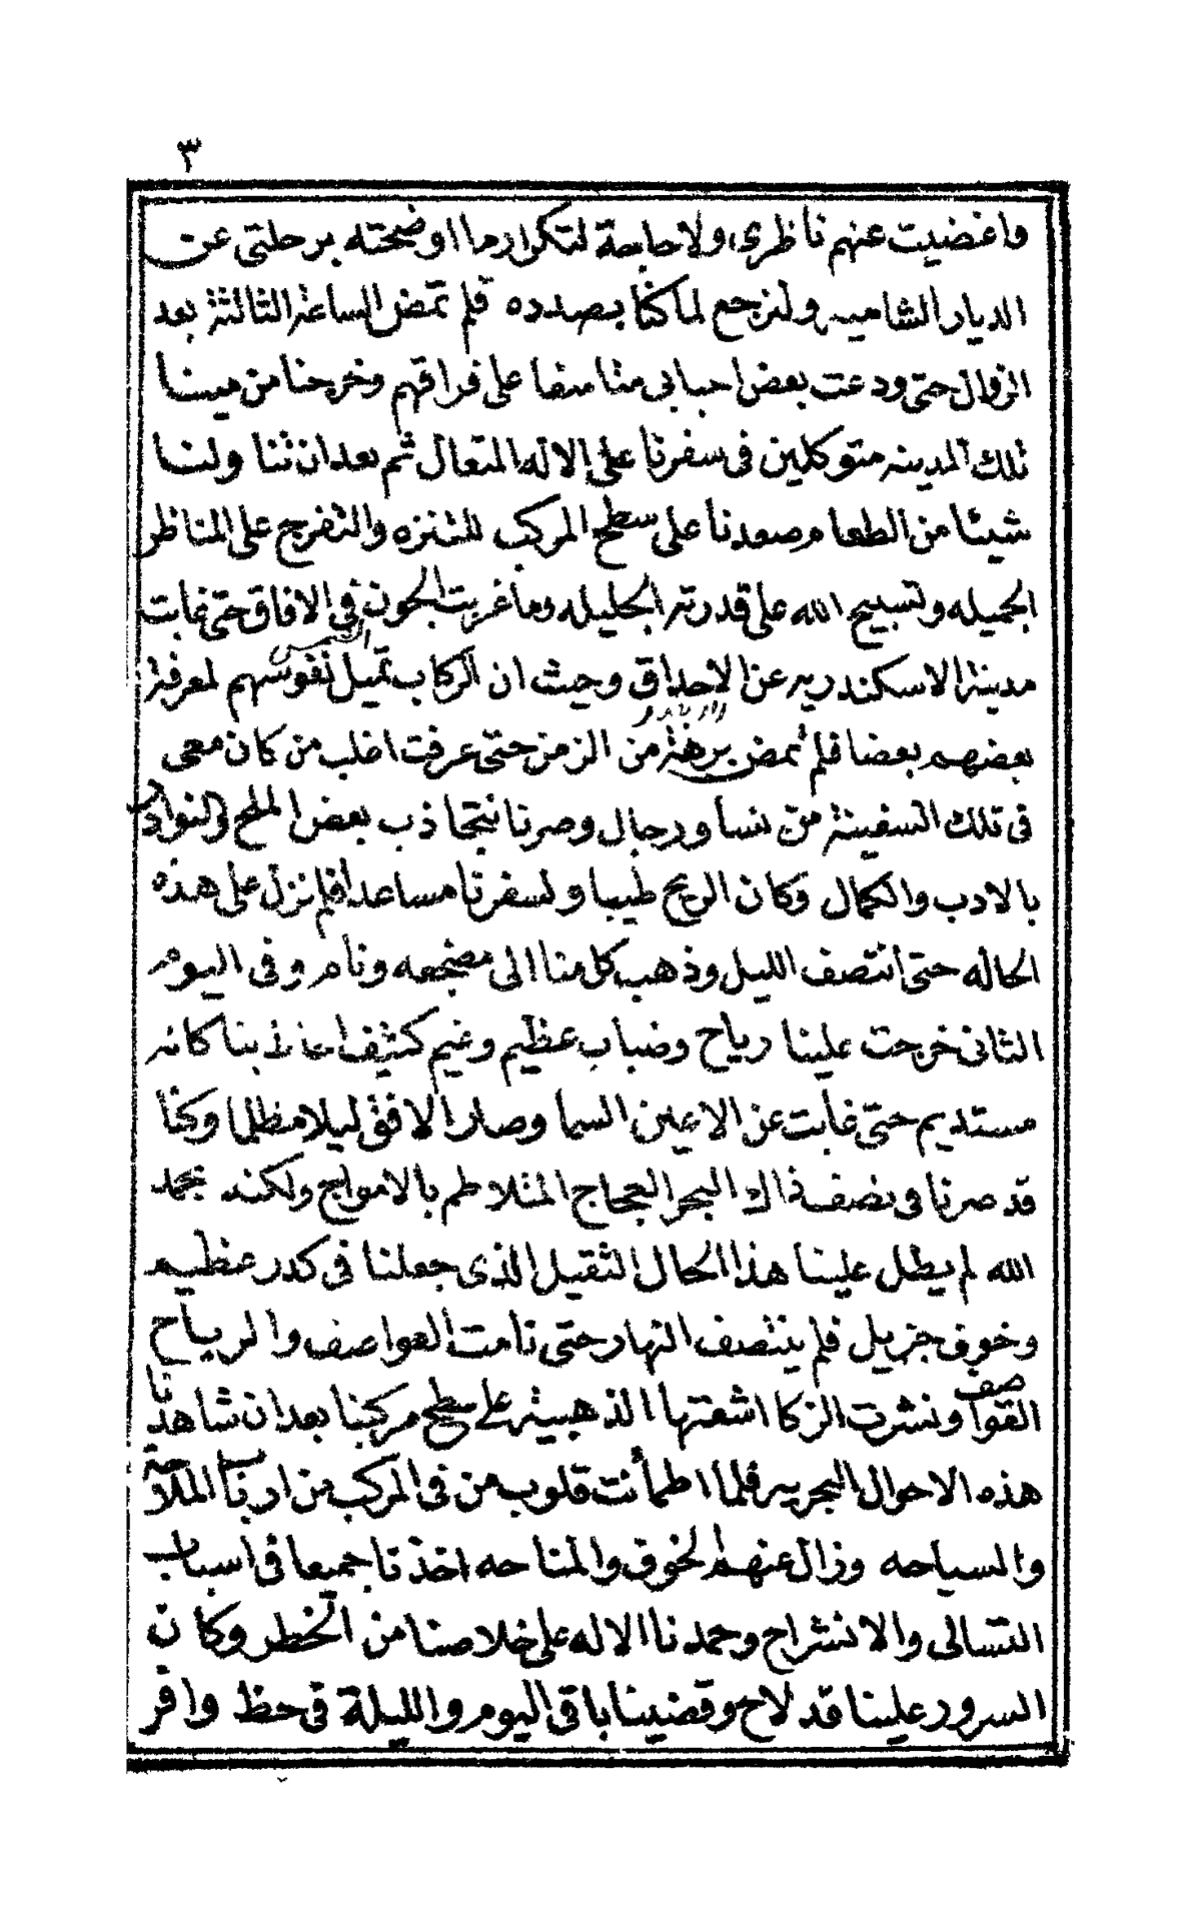 ٣
واغضيت عنهم ناظرى، ولا حاجة لتكرار ما اوضحته برحلتى عن
الديار الشاميه ولنرجع لما كنا بصدده فلم تمض الساعة الثالثة بعد
الزوال حتى ودعت بعض احبابى متاسفا على فراقهم وخرجنا من مينا
تلك المدينه متوكلين فى سفرنا على الاله المتعال ثم بعد ان تناولنا
شيئا من الطعام صعدنا على سطح المركب للتنزه والتفرج على المناظر
الجميله وتسبيح الله على قدرته الجليله وما غربت الجون فى الافاق حتى غابت
الشمس
مدينة الاسكندريه عن الاحداق وحيث ان الركاب تميل نفوسهم لمعرفة
بعضهم بعضا فلم تمض برهة من الزمن حتى عرفت اغلب من كان معى
فى تلك السفينة من نسا ورجال وصرنا نتجاذب بعض الملح والنوادر
بالادب والكمال وكان الريح طيبا ولسفرنا مساعدا فلم نزل على هذه
الحاله حتى انتصف الليل وذهب كل منا الى مضجعه ونام وفى اليوم
الثانى خرجت علينا رياح وضباب عظيم وغيم كثيف احاط بنا كانه
مستديم حتى غابت عن الاعين السما وصار الافق ليلا مظلما وكنا
قد صرنا فى نصف ذاك البحر العجاج المتلاطم بالامواج ولكنه بحمد
الله لم يطل علينا هذا الحال الثقيل الذى جعلنا فى كدر عظيم
وخوف جزيل فلم ينتصف النهار حتى نامت العواصف والرياح
القواصف ونشرت الزكا اشعتها الذهبية على سطح مركبنا بعد ان شاهدنا
هذه الاحوال البحريه فلما اطمأنت قلوب من فى المركب من ارباب الملاحة
والسياحه وزال عنهم الخوف والمناحه اخذنا جميعا فى اسباب
التسالى والانشراح وحمدنا الاله على خلاصنا من الخطر وكان
السرور علينا قد لاح وقضينا باقى اليوم والليلة فى حظ وافر